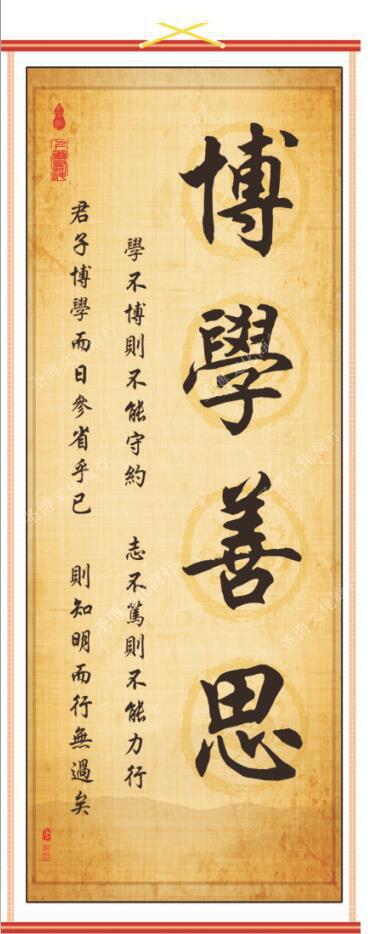 博學善思
學不博則不能守約 志不篤則不能力行
君子博學而日參省乎己 則知明而行無過矣